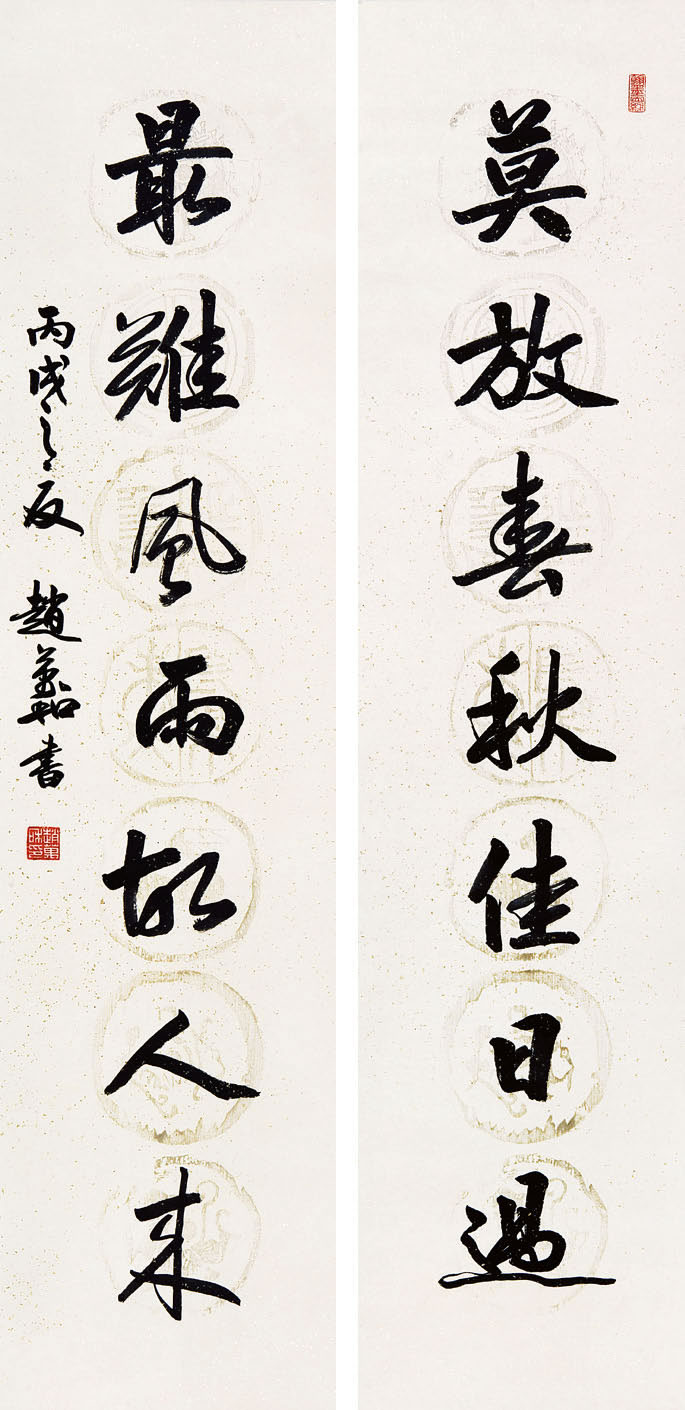 莫放春秋佳日過
最難風雨故人來
丙戌之夏 趙萬和書